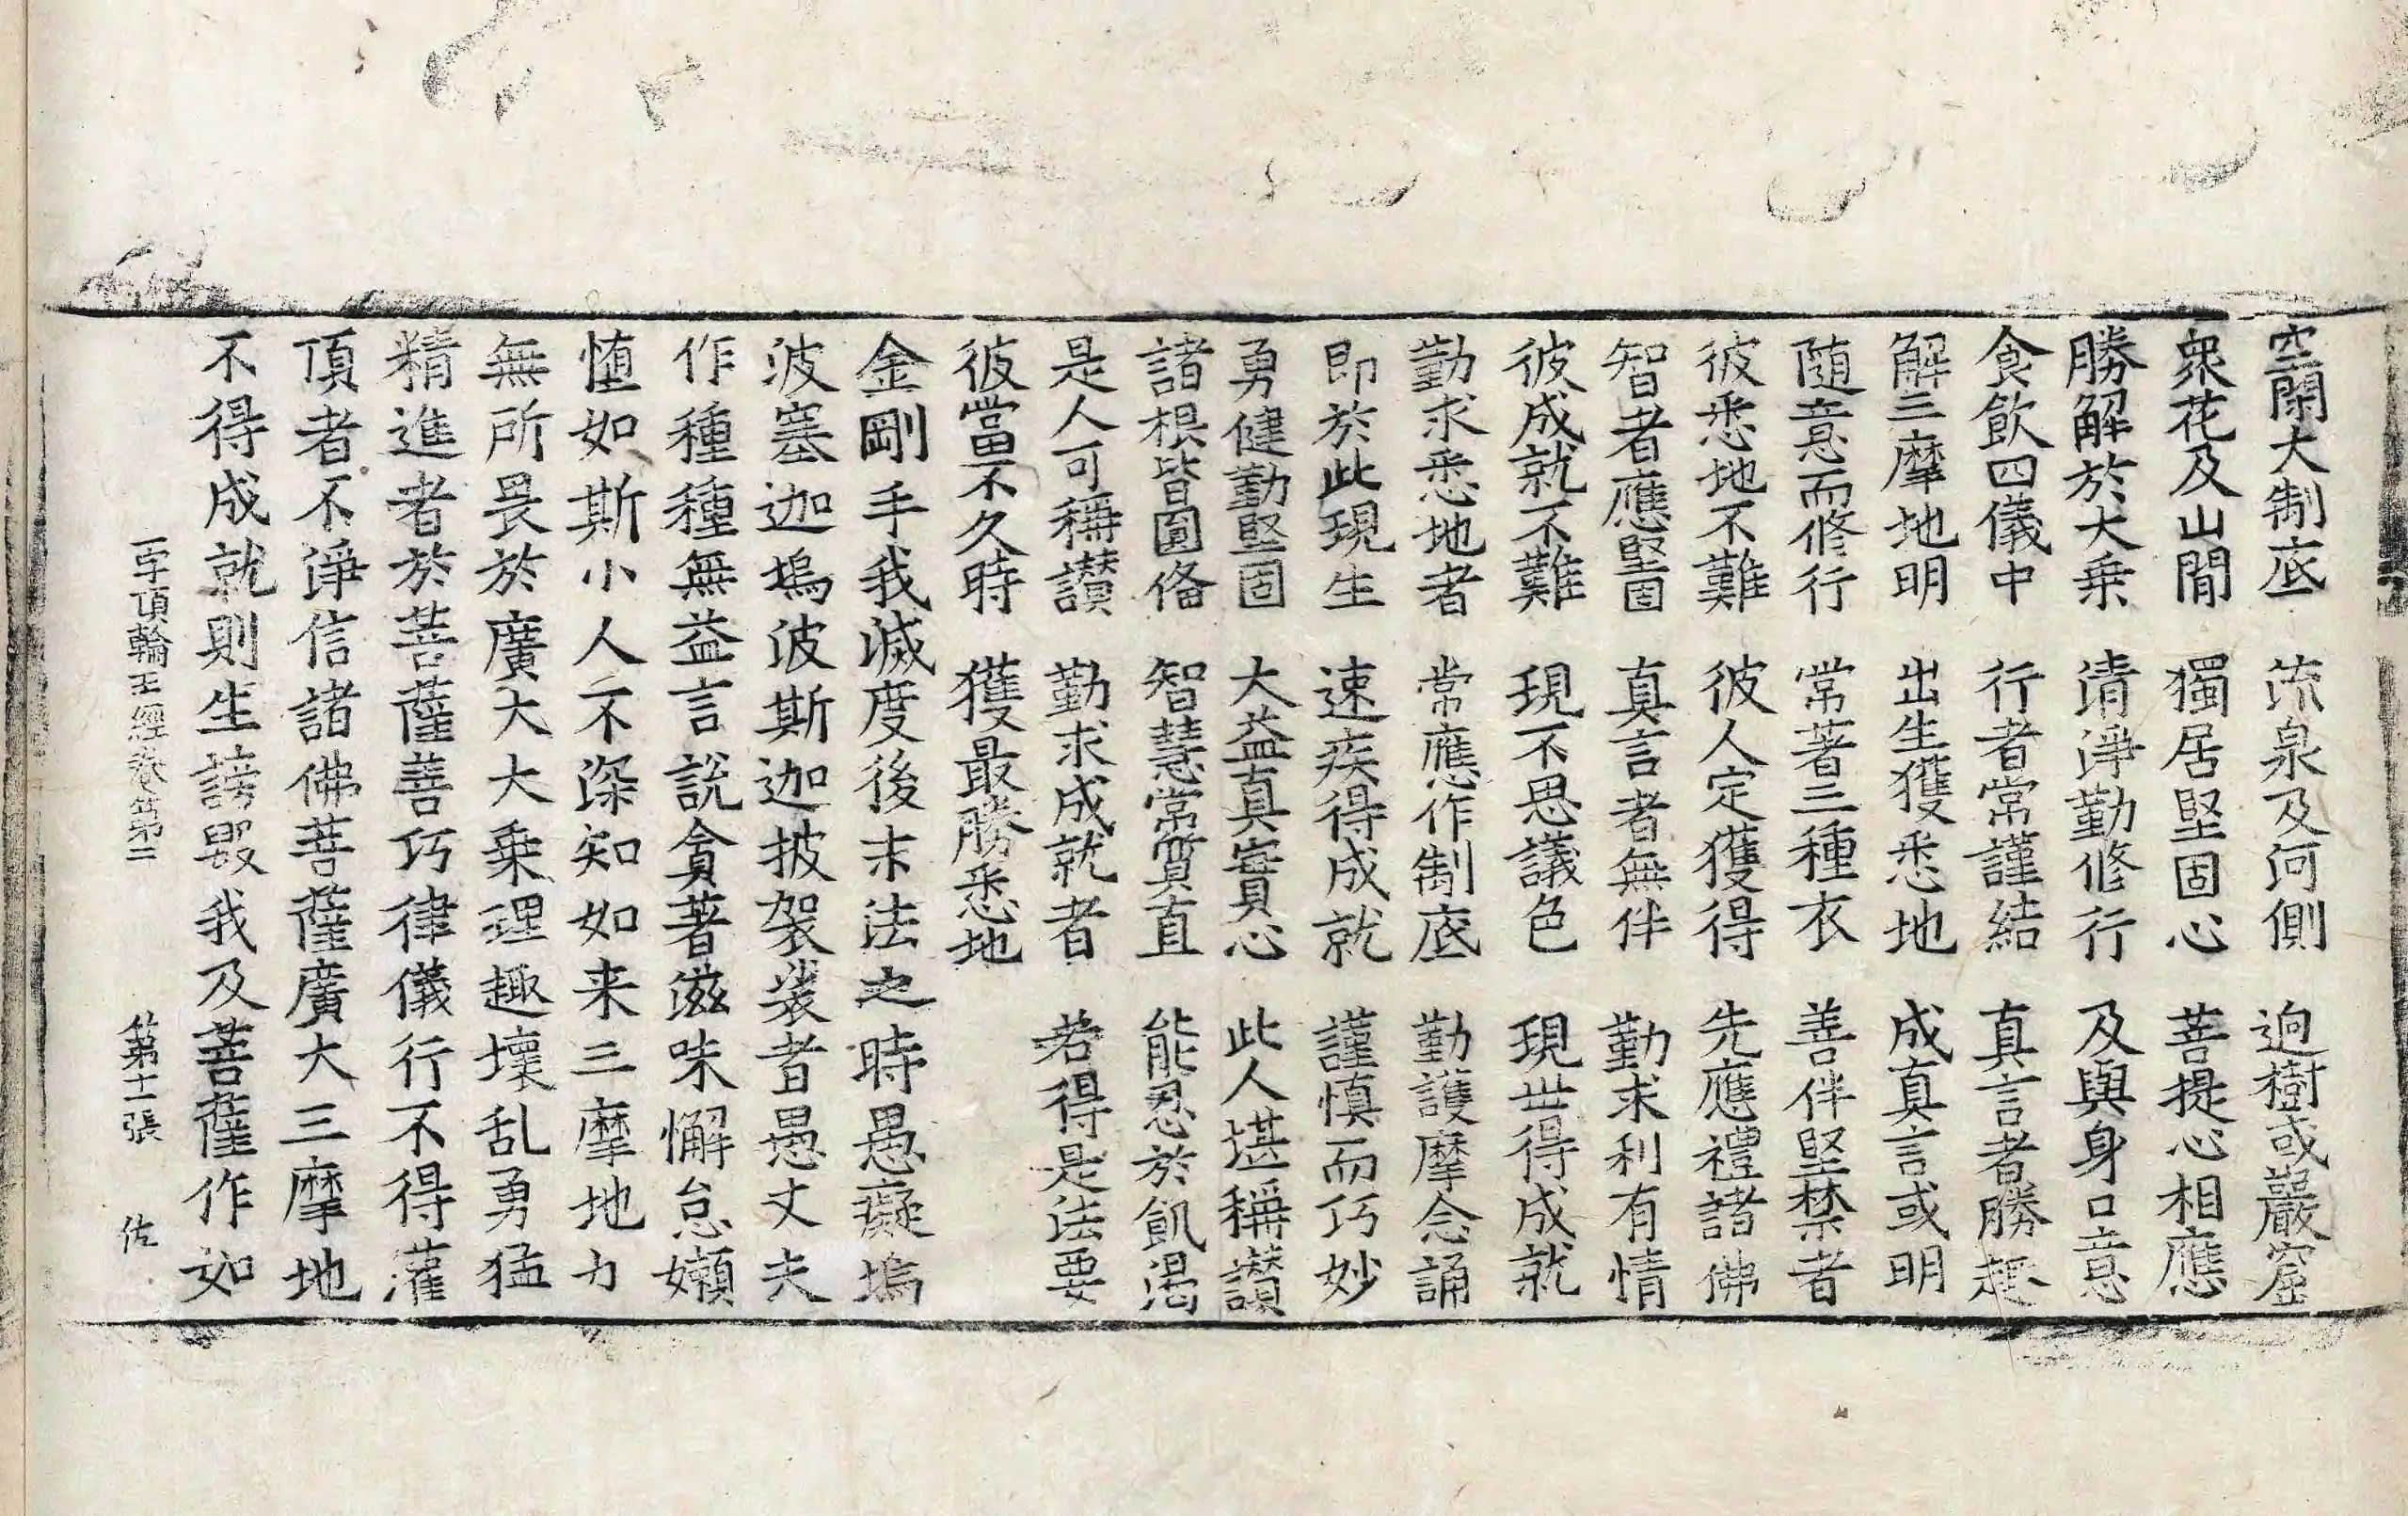 空閑大制底 流泉及河側 逈樹或巖窟
衆花及山間 獨居堅固心 菩提心相應
勝解於大乗 清淨勤修行 及與身口意
食飲四儀中 行者常謹結 真言者勝趣
解三摩地明 出生獲悉地 成真言或明
随意而修行 常著三種衣 善伴堅禁者
彼悉地不難 彼人定獲得 先應禮諸佛
智者應堅固 真言者無伴 勤求利有情
彼成就不難 現不思議色 現世得成就
勤求悉地者 常應作制底 勤護摩念誦
即於此現生 速疾得成就 謹慎而巧妙
勇健勤堅固 大益真實心 此人堪稱讃
諸根皆圓俻 智慧常質直 能忍於飢渴
是人可稱讃 勤求成就者 若得是法要
彼當不久時 獲最勝悉地
金剛手我滅度後末法之時愚癡塢
波塞迦塢波斯迦披袈裟者愚丈夫
作種種無益言說貪著滋味懈怠嬾
惰如斯小人不深知如来三摩地力
無所畏於廣大大乗理趣壞乱勇猛
精進者於菩薩善巧律儀行不得灌
頂者不淨信諸佛菩薩廣大三摩地
不得成就則生謗毀我及菩薩作如
一字頂輪王經卷第二 第十一張 佐